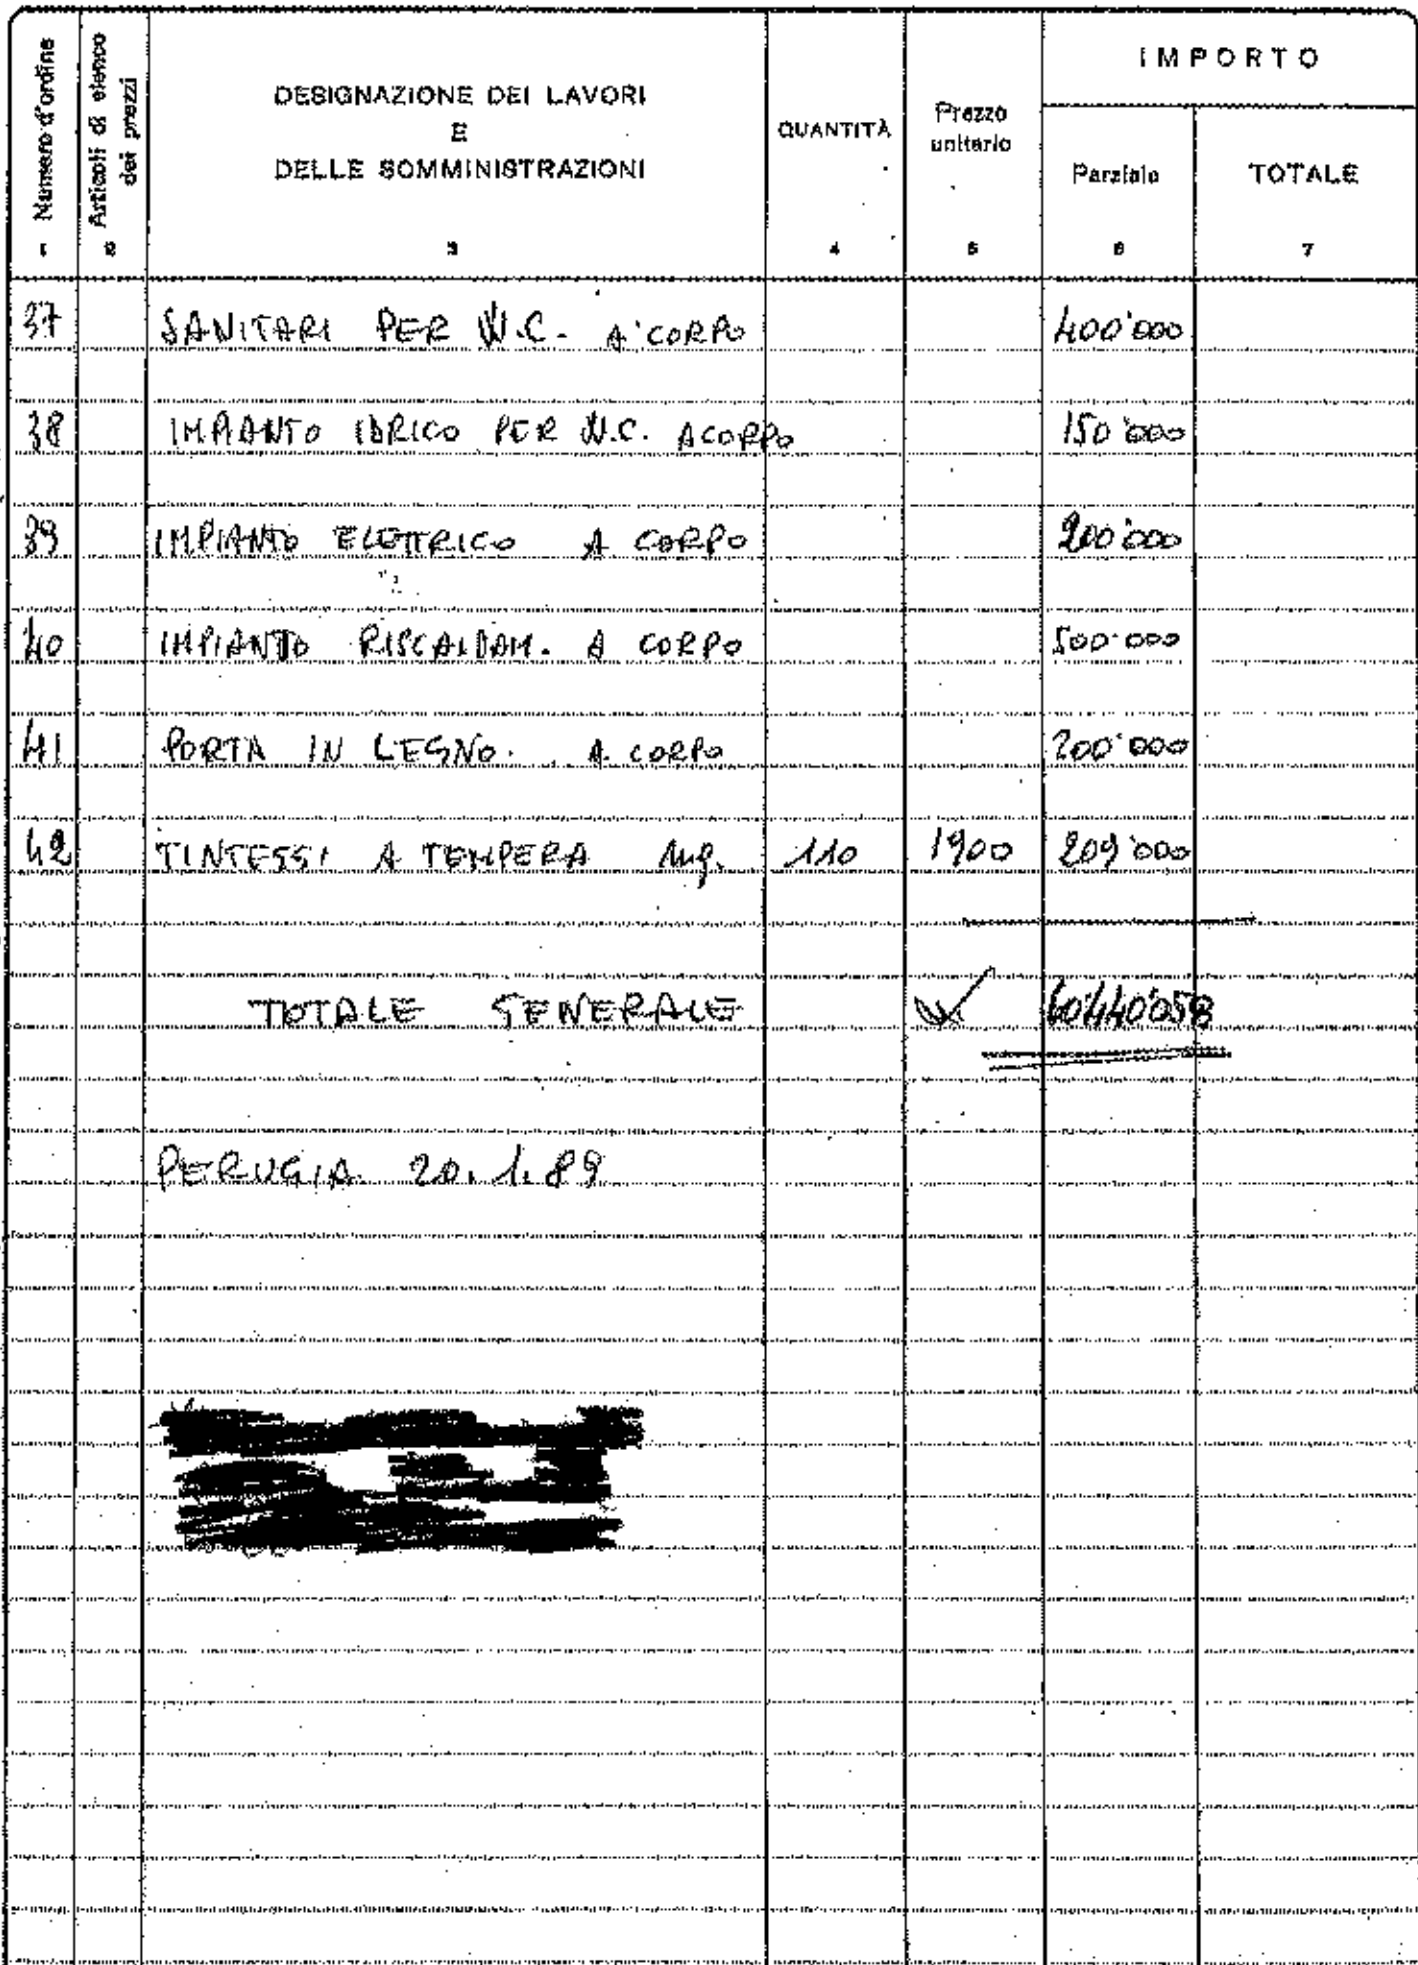 IMPORTO
Numero d'ordine
Articoli di elenco dei prezzi
DESIGNAZIONE DEI LAVORI
E
DELLE SOMMINISTRAZIONI
QUANTITÀ
Prezzo unitario
Parziale
TOTALE
1 2 3 4 5 6 7
37 SANITARI PER W.C. A CORPO 400'000
38 IMPIANTO IDRICO PER W.C. A CORPO 150'000
39 IMPIANTO ELETTRICO A CORPO 200'000
40 IMPIANTO RISCALDAM. A CORPO 500'000
41 PORTA IN LEGNO. A CORPO 200'000
42 TINTESSI A TEMPERA mq. 110 1900 209'000
TOTALE GENERALE 60'440'058
PERUGIA 20.1.89